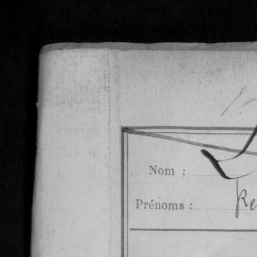 Nom :
Prénoms : Re